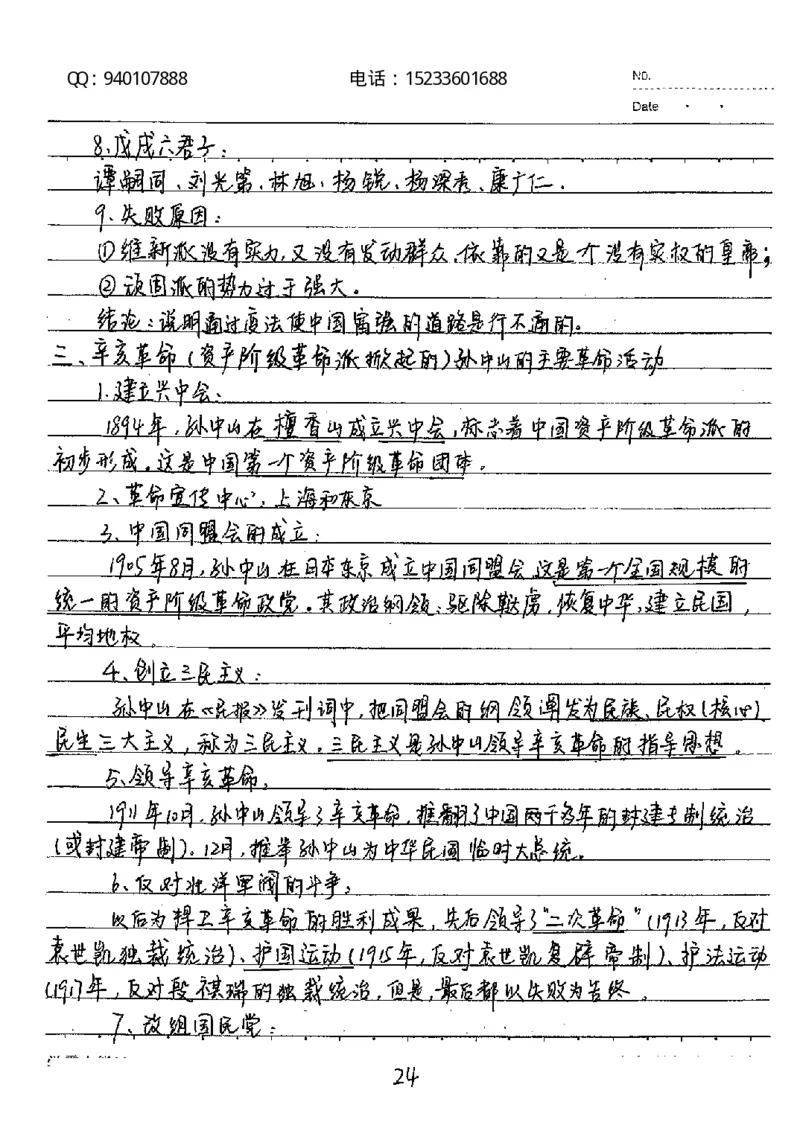 QQ：940107888 电话：15233601688 No.
Date
8、戊戌六君子：
谭嗣同、刘光第、林旭、杨锐、杨深秀、康广仁.
9、失败原因：
①维新派没有实力,又没有发动群众、依靠的又是个没有实权的皇帝；
②顽固派的势力过于强大。
结论：说明通过变法使中国富强的道路是行不通的。
三、辛亥革命（资产阶级革命派掀起的）孙中山的主要革命活动
1.建立兴中会：
1894年,孙中山在檀香山成立兴中会,标志着中国资产阶级革命派的
初步形成。这是中国第一个资产阶级革命团体。
2、革命宣传中心：上海和东京
3、中国同盟会的成立：
1905年8月,孙中山在日本东京成立中国同盟会.这是第一个全国规模的
统一的资产阶级革命政党。其政治纲领：驱除鞑虏,恢复中华,建立民国,
平均地权。
4、创立三民主义：
孙中山在《民报》发刊词中,把同盟会的纲领阐发为民族、民权(核心)、
民生三大主义,称为三民主义。三民主义是孙中山领导辛亥革命的指导思想。
5、领导辛亥革命：
1911年10月,孙中山领导了辛亥革命,推翻了中国两千多年的封建专制统治
(或封建帝制)、12月,推举孙中山为中华民国临时大总统。
6、反对北洋军阀的斗争：
以后为捍卫辛亥革命的胜利成果,先后领导了"二次革命"(1913年,反对
袁世凯独裁统治)、护国运动(1915年,反对袁世凯复辟帝制)、护法运动
(1917年,反对段祺瑞的独裁统治,但是,最后都以失败为告终。
7、改组国民党：
24